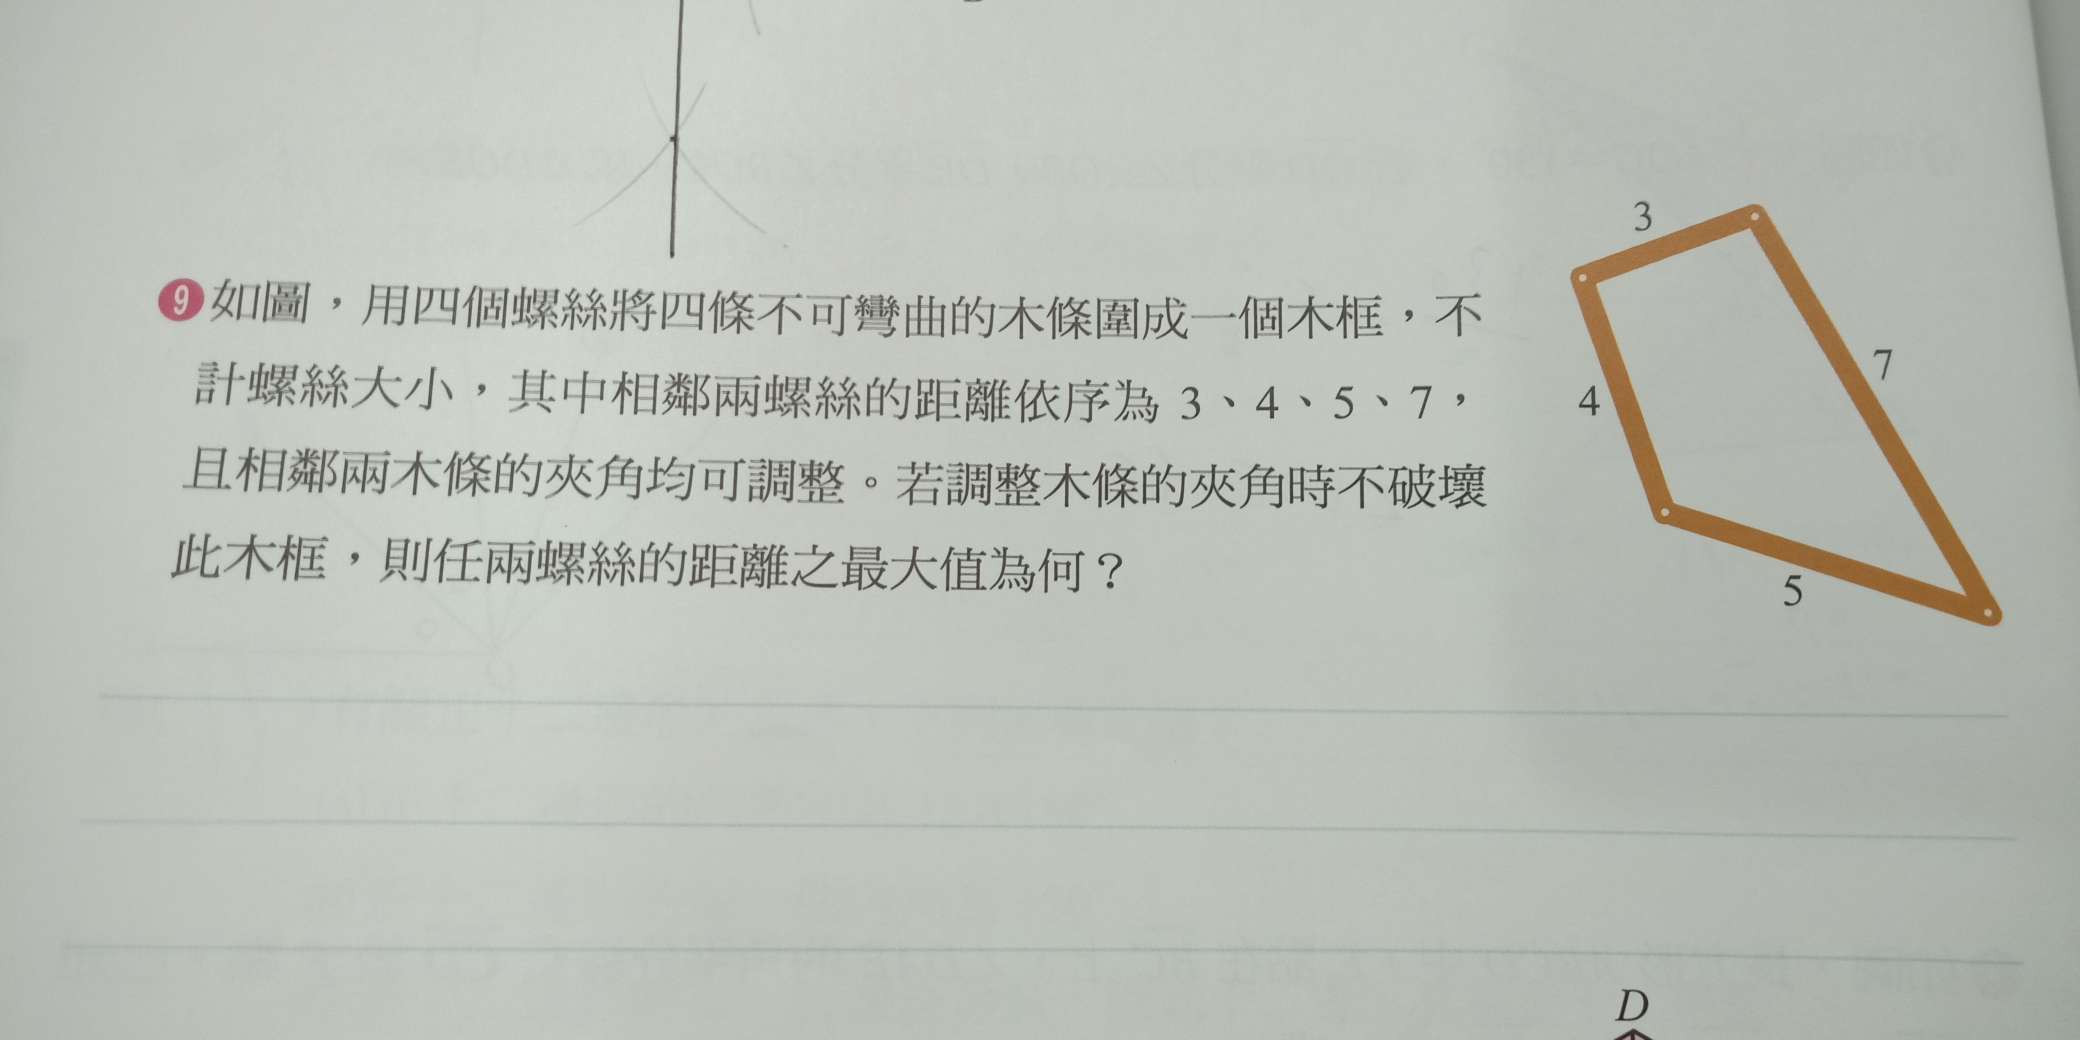 3
❾如圖，用四個螺絲將四條不可彎曲的木條圍成一個木框，不
計螺絲大小，其中相鄰兩螺絲的距離依序為 3、4、5、7，
且相鄰兩木條的夾角均可調整。若調整木條的夾角時不破壞
此木框，則任兩螺絲的距離之最大值為何？
7
4
5
D